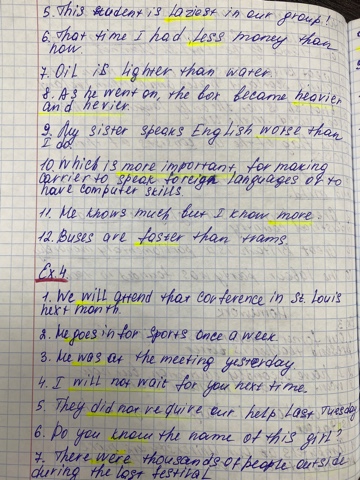 5. This student is laziest in our group!
6. That time I had less money than
now
7. Oil is lighter than water.
8. As he went on, the box became heavier
and hevier.
9. My sister speaks English worse than
I do
10 Which is more important for making
carrier to speak foreign languages or to
have computer skills
11. He knows much but I know more
12. Buses are faster than trams
Ex 4.
1. We will attend that conference in St. Louis
next month.
2. He goes in for sports once a week
3. He was at the meeting yesterday
4. I will not wait for you next time.
5. They did not require our help last Tuesday
6. Do you know the name of this girl?
7. There were thousands of people outside
during the last festival